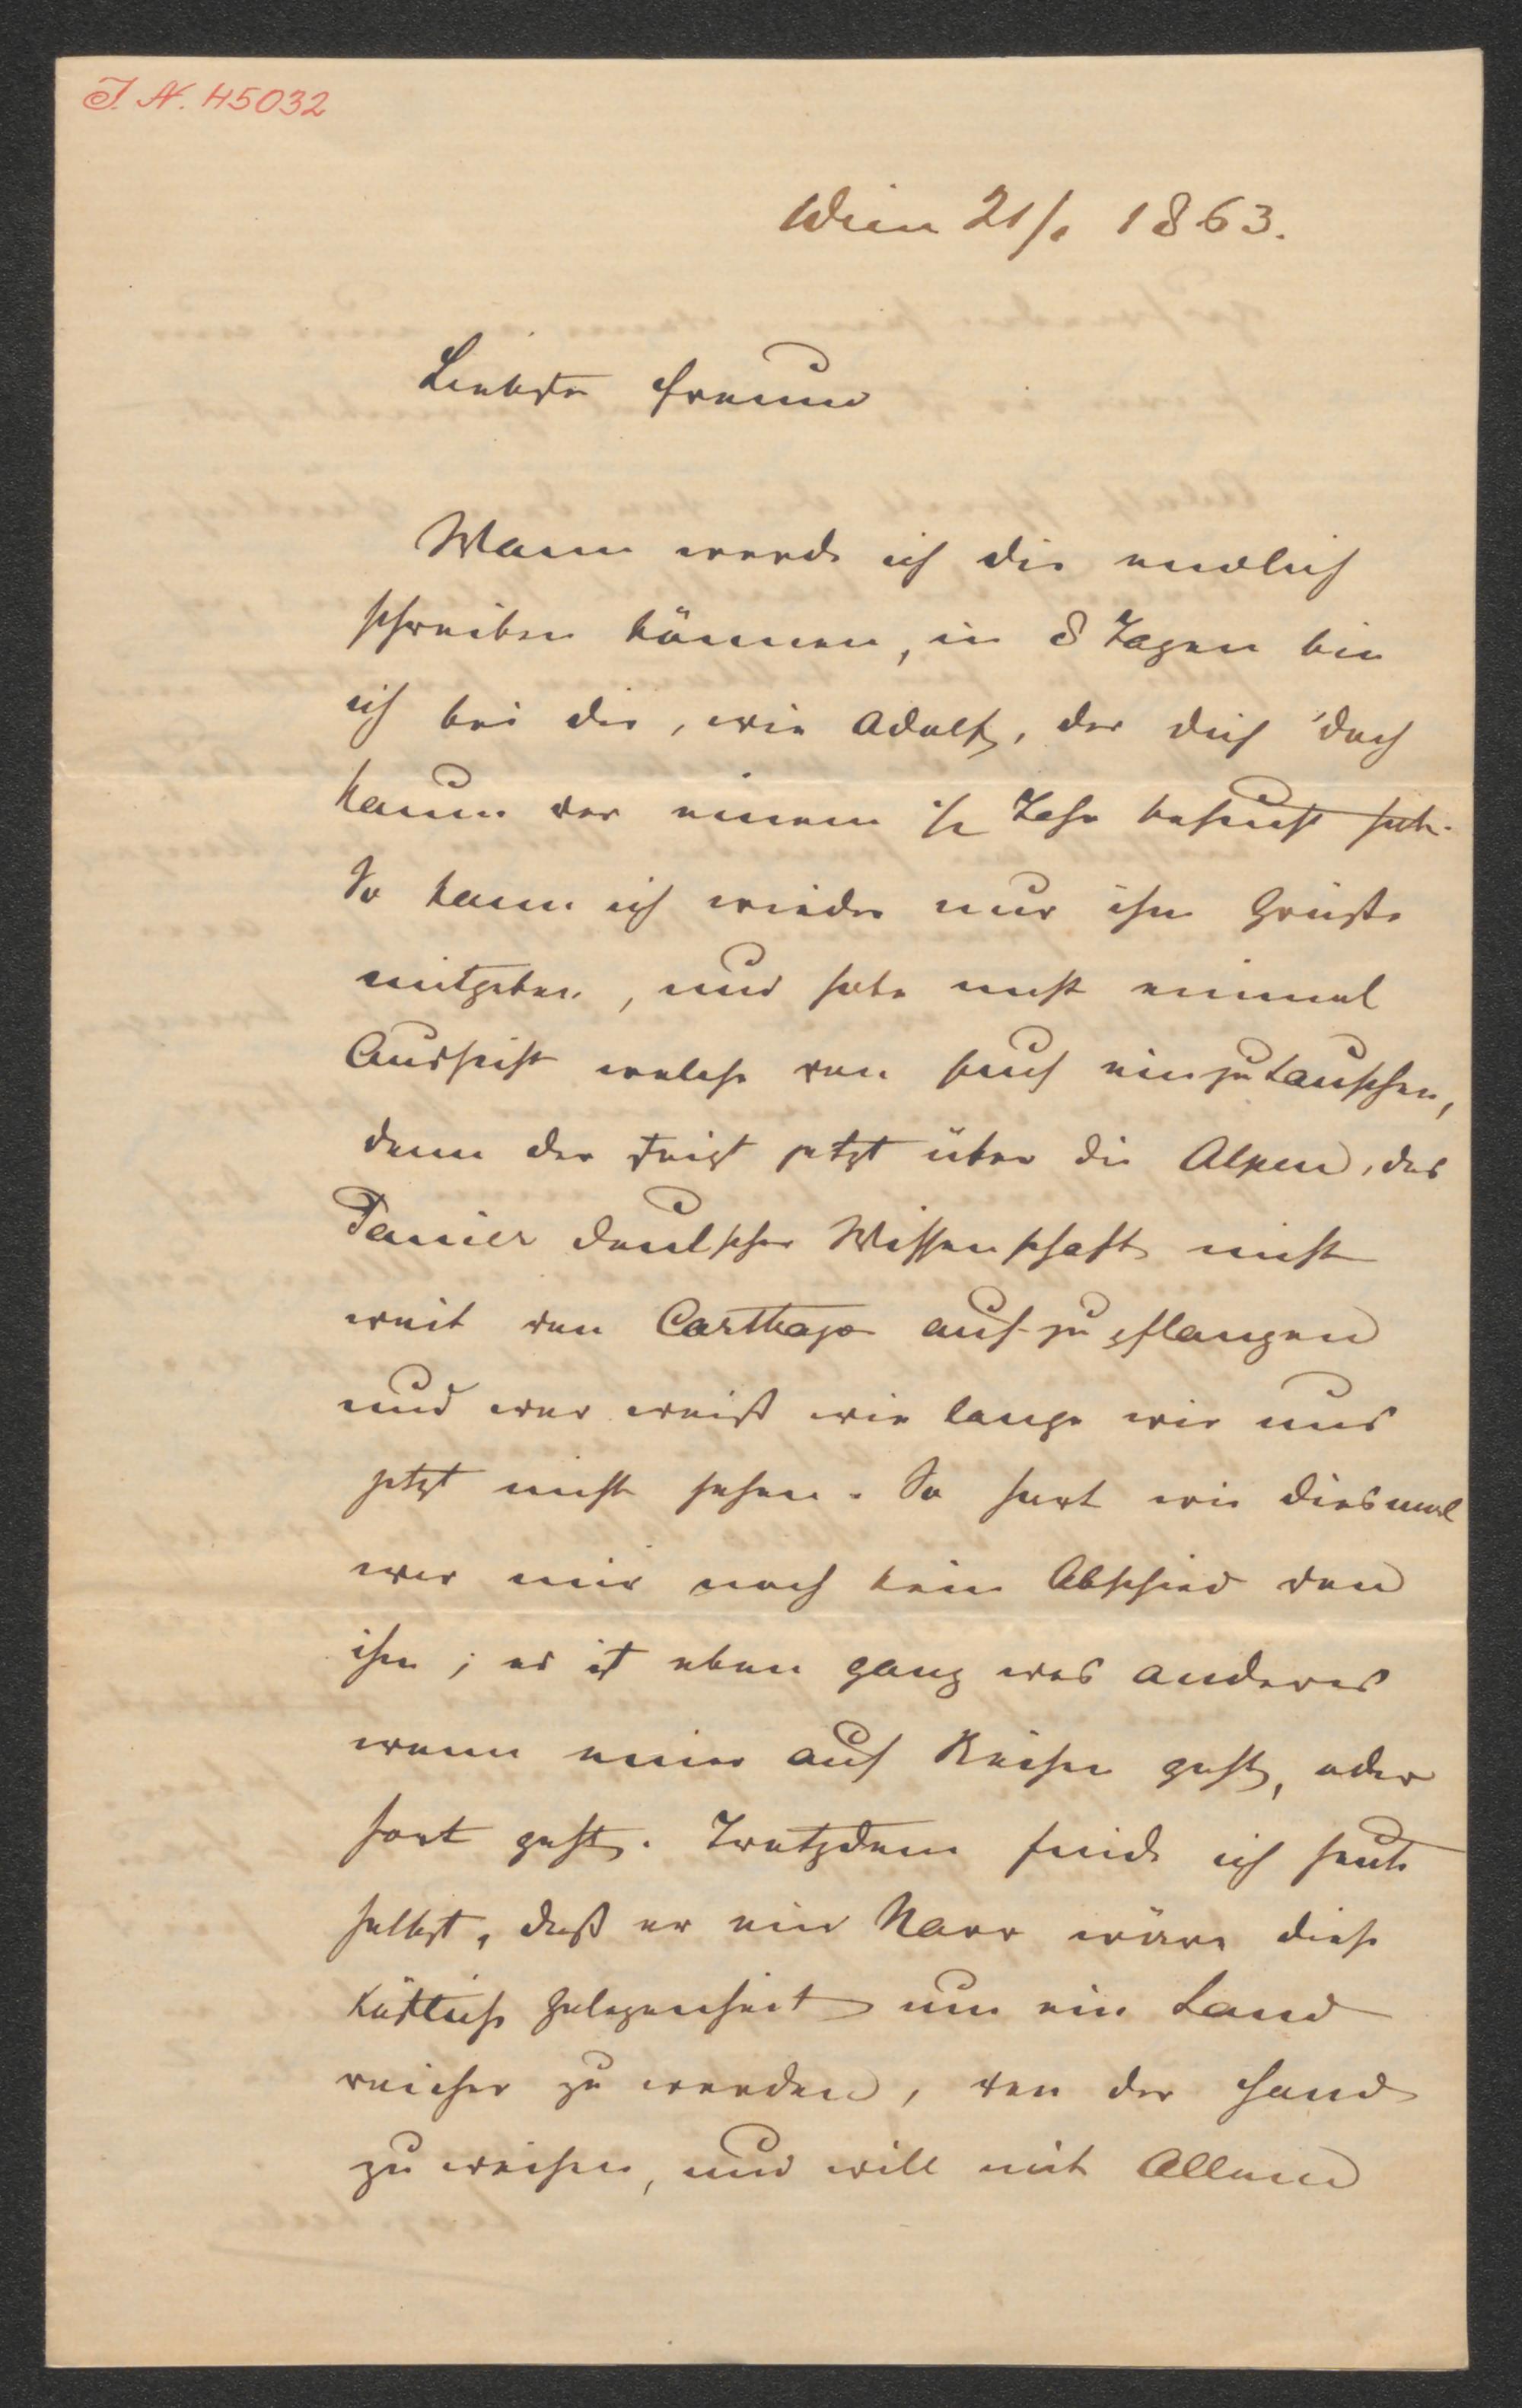 J. N. 45032
Wien 21/1 1863.
Liebster Freund
Wann werde ich dir endlich
schreiben können, in 8 Tagen bin
ich bei dir, wie Adolf, der dich doch
kaum vor einem 1/2 Jahr besucht hat.
So kann ich wieder nur ihm Grüße
mitgeben, und habe nicht einmal
Aussicht welche von euch einzutauschen,
denn der steigt jetzt über die Alpen, das
Panier deutscher Wissenschaft nicht
weit von Carthago aufzupflanzen
und wer weiß wie lange wir uns
jetzt nicht sehen. So hart wie diesmal
war mir noch kein Abschied von
ihm; es ist eben ganz was anderes
wenn einer auf Reisen geht, oder
fort geht. Trotzdem finde ich heute
selbst, daß er ein Narr wäre diese
köstliche Gelegenheit um ein Land
reicher zu werden, von der Hand
zu weisen, und will mit Allem